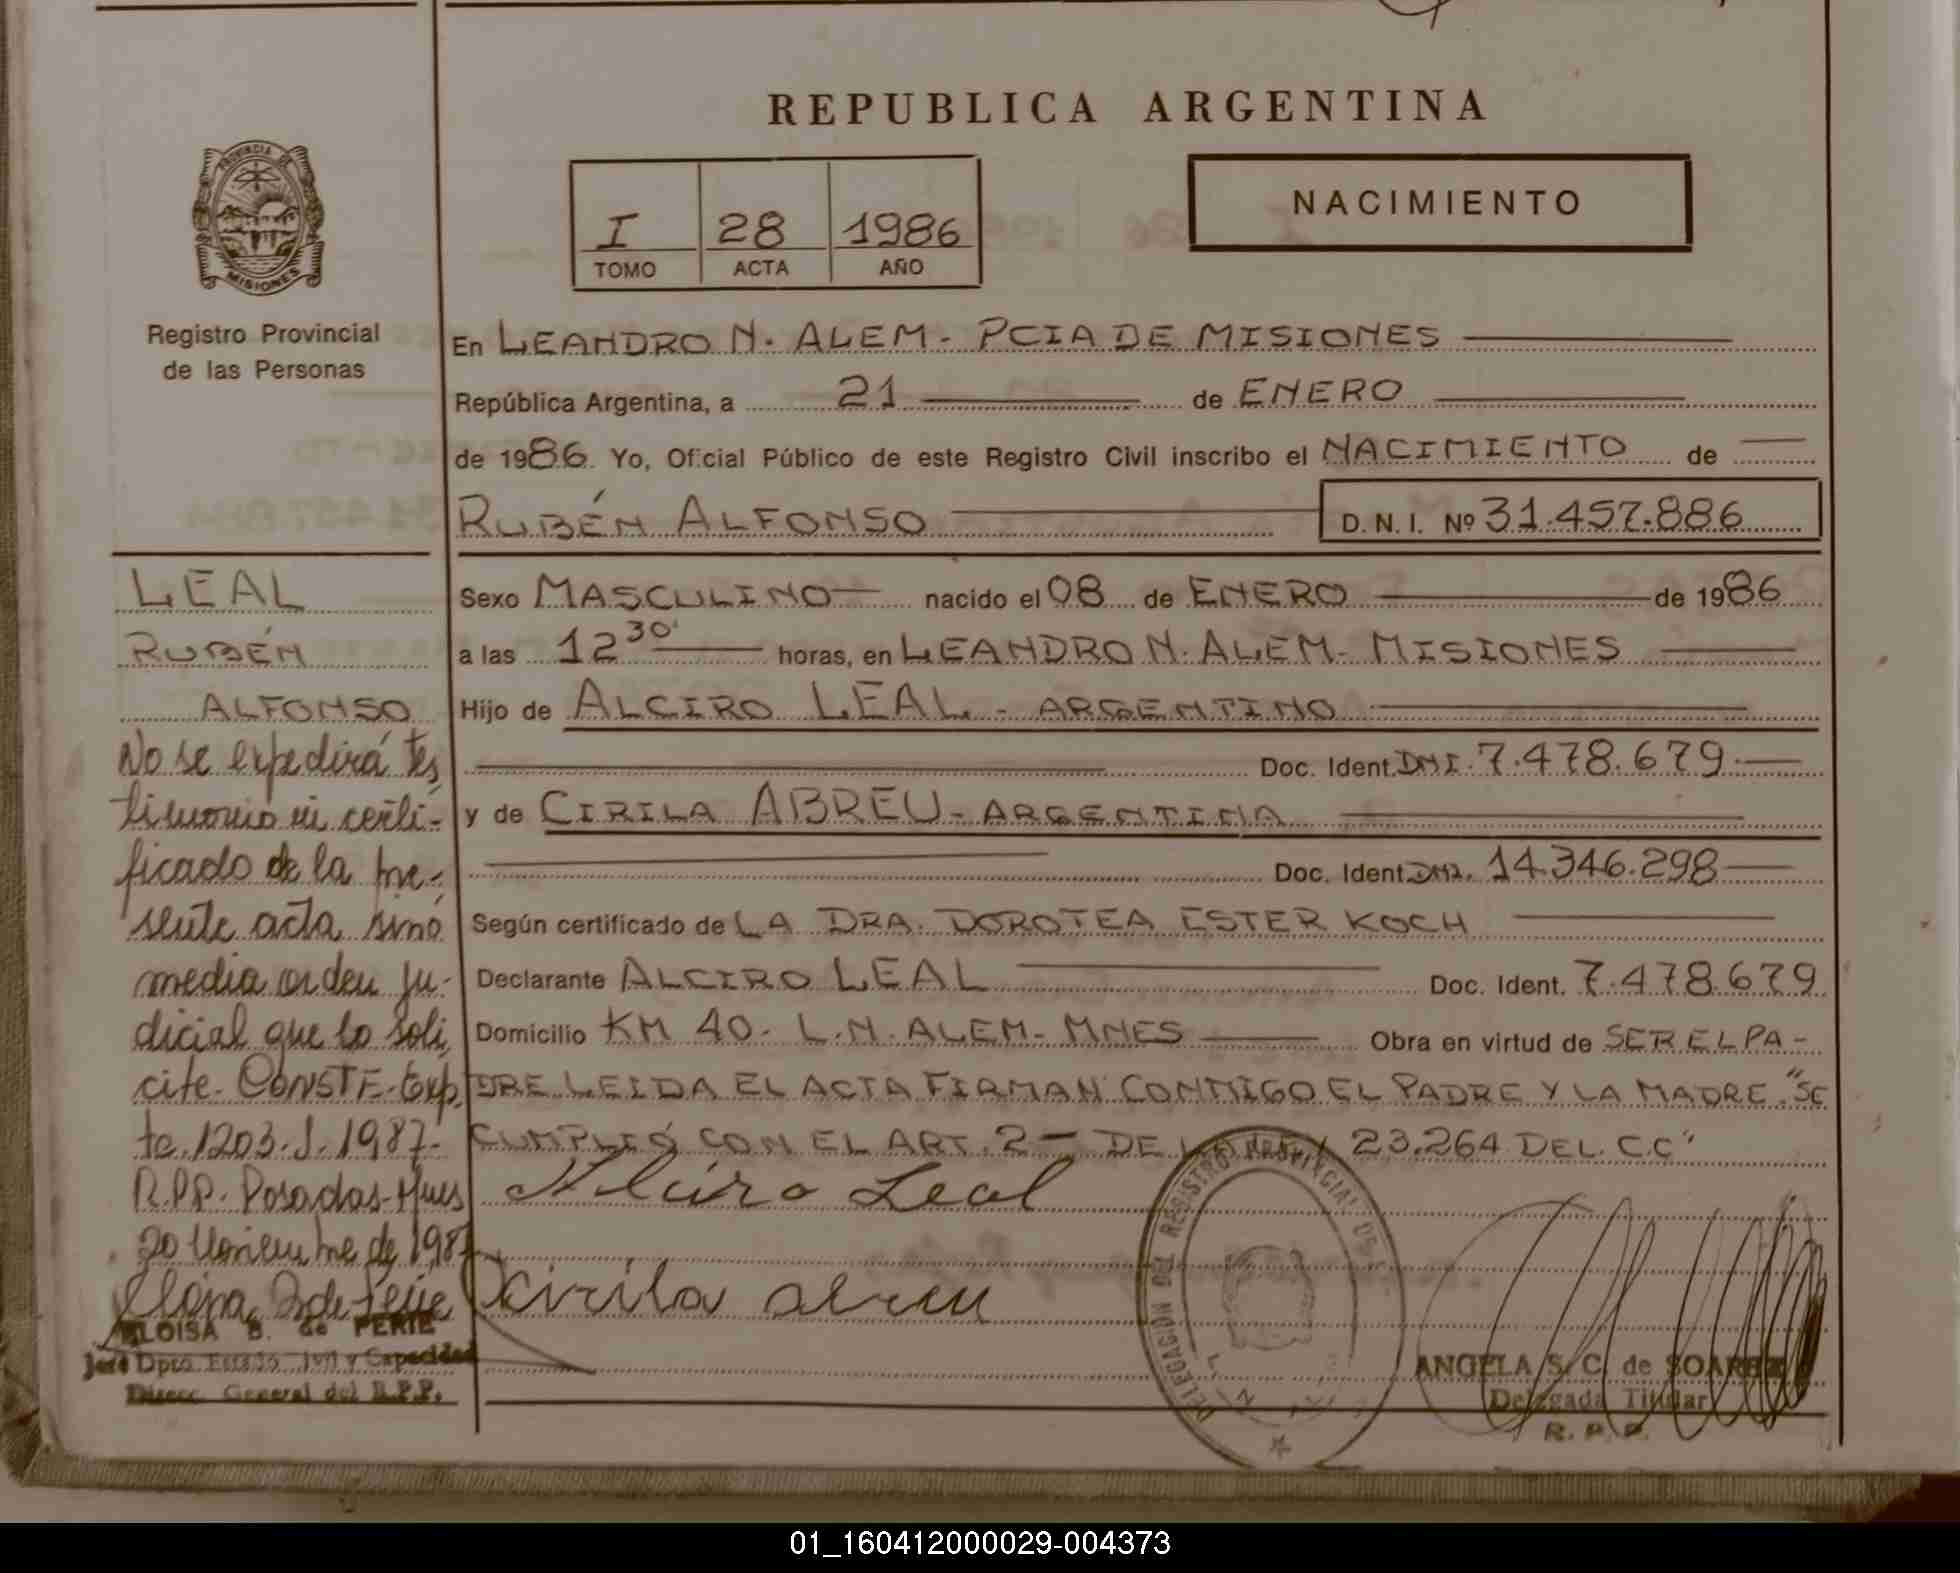 REPUBLICA ARGENTINA
PROVINCIA DE
MISIONES
Registro Provincial
de las Personas
I 28 1986
TOMO ACTA AÑO
NACIMIENTO
En LEANDRO N. ALEM - PCIA DE MISIONES
República Argentina, a 21 de ENERO
de 1986. Yo, Oficial Público de este Registro Civil inscribo el NACIMIENTO de
RUBÉN ALFONSO D. N. I. Nº 31.457.886
Sexo MASCULINO nacido el 08 de ENERO de 1986
a las 12 30' horas, en LEANDRO N. ALEM - MISIONES
Hijo de ALCIRO LEAL - ARGENTINO
Doc. Ident. DNI. 7.478.679
y de CIRILA ABREU - ARGENTINA
Doc. Ident. DNI. 14.346.298
Según certificado de LA DRA. DOROTEA ESTER KOCH
Declarante ALCIRO LEAL Doc. Ident. 7.478.679
Domicilio KM 40 - L.N. ALEM - MNES Obra en virtud de SER EL PA-
DRE LEIDA EL ACTA FIRMAN CONMIGO EL PADRE Y LA MADRE. "SE
CUMPLIÓ CON EL ART. 2 - DE LA LEY 23.264 DEL C.C"
Alciro Leal
cirila abreu
DELEGACION DEL REGISTRO PROVINCIAL DE
ANGELA S. C. de SOAREZ
Delegada Titular
R. P. P.
LEAL
RUBÉN
ALFONSO
No se expedirá tes
timonio ni certi-
ficado de la pre-
sente acta sinó
media orden ju-
dicial que lo soli
cite - CONSTE - Exp
te. 1203-J-1987-
R.P.P. Posadas - Mnes
20 Noviembre de 1987
ELOISA B. de PERIE
Jefe Dpto. Estado Civil y Capacidad
Direcc. General del R.P.P.
01_160412000029-004373